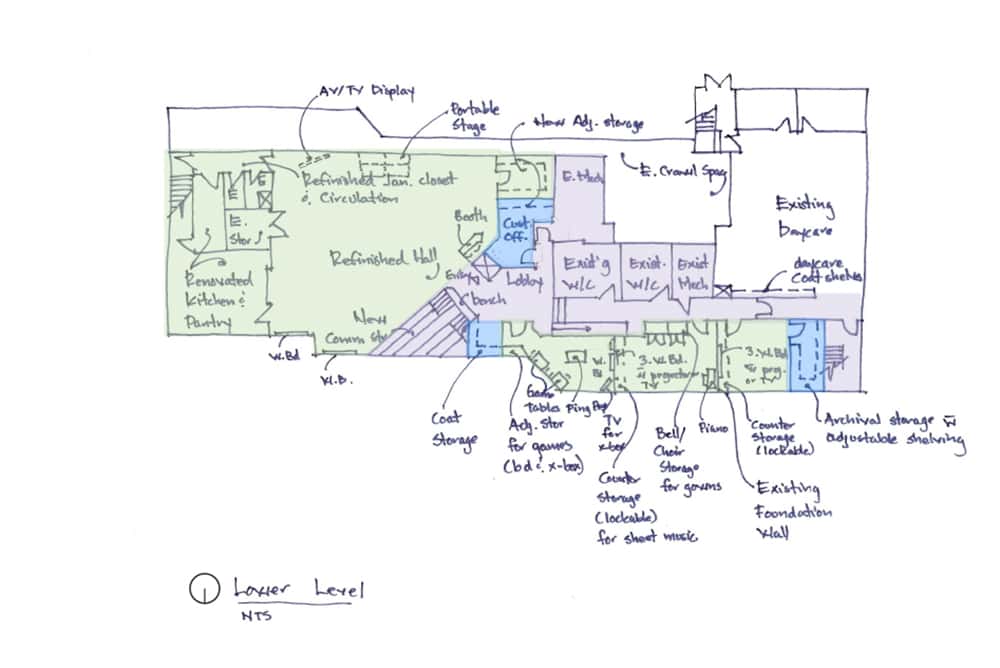 AV/TV Display
Portable
Stage
New Adj. storage
Refinished Jan. closet
&. Circulation
E. Mech
E. Crawl Spac
Existing
Daycare
daycare
Coat shelves
E.
E.
E.
Stor
Booth
Cust.
Off.
Refinished Hall
Entry
Lobby
Exist'g
W/C
Exist.
W/C
Exist
Mech
Renovated
Kitchen &
Pantry
bench
New
Comm
W.Bd
W.B.
W.
Bd
3. W. Bd.
w projector
TV
3. W. Bd
w proj.
or TV
Coat
Storage
Game
Tables
Ping Pong
Adj. Stor
for games
(bd &. x-box)
TV
for
xbox
Counter
Storage
(lockable)
for sheet music
Bell/
Choir
Storage
for gowns
Piano
Counter
Storage
(lockable)
Existing
Foundation
Wall
Archival storage w
adjustable shelving
Lower Level
NTS